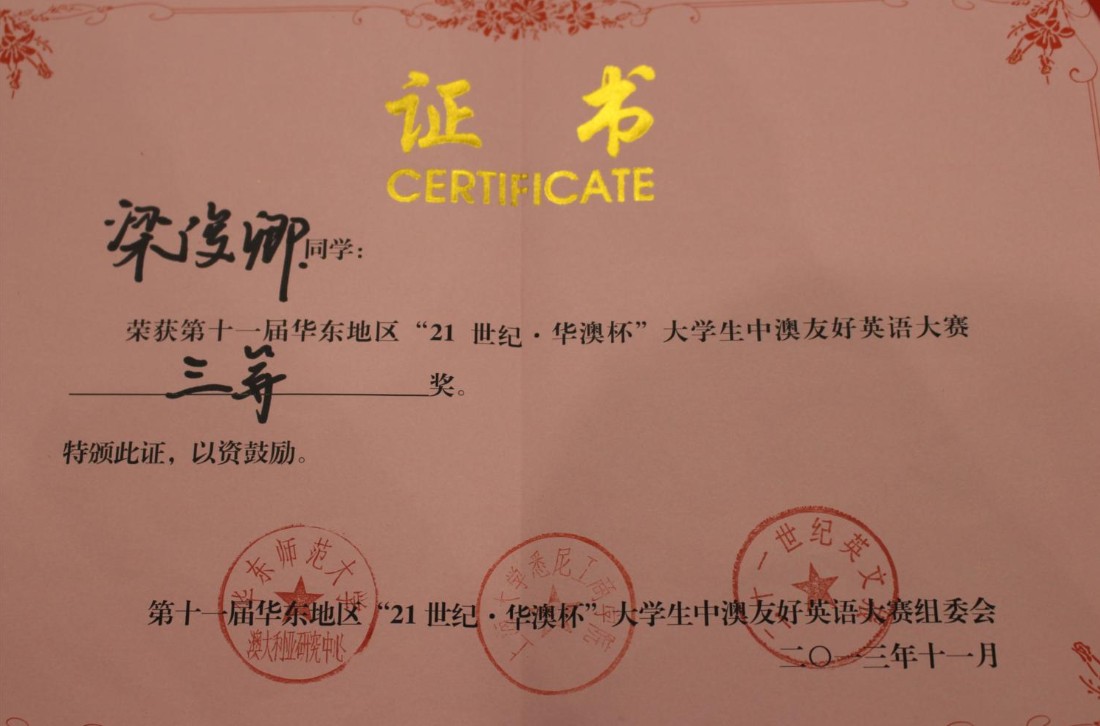 证 书
CERTIFICATE
梁俊卿同学：
荣获第十一届华东地区“21 世纪·华澳杯”大学生中澳友好英语大赛
三等奖。
特颁此证，以资鼓励。
华东师范大学
澳大利亚研究中心
上海大学悉尼工商学院
二十一世纪英文报
第十一届华东地区“21 世纪·华澳杯”大学生中澳友好英语大赛组委会
二〇一三年十一月